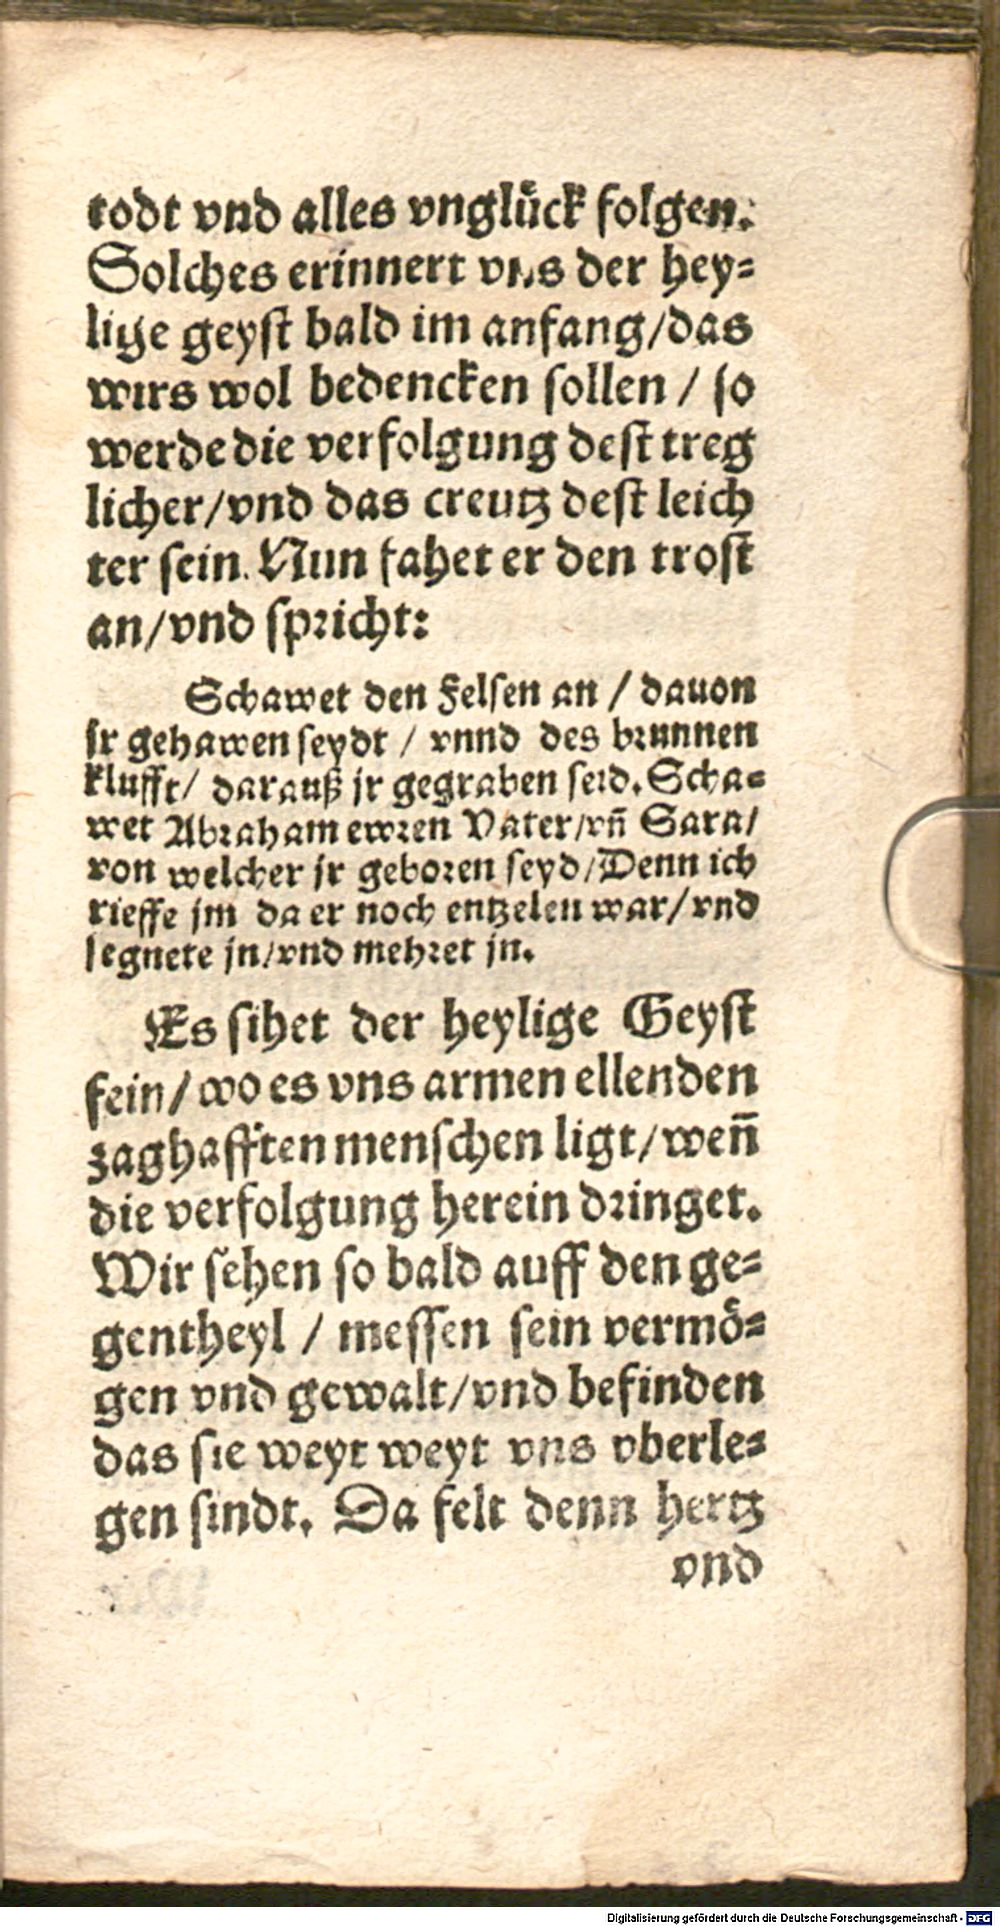 todt vnd alles vnglück folgen.
Solches erinnert vns der hey-
lige geyst bald im anfang/das
wirs wol bedencken sollen / so
werde die verfolgung dest treg
licher/vnd das creutz dest leich
ter sein. Nun fahet er den trost
an/vnd spricht:
Schawet den Felsen an / dauon
jr gehawen seydt / vnnd des brunnen
klufft/ darauß jr gegraben seid. Scha-
wet Abraham ewren Vater/vñ Sara/
von welcher jr geboren seyd/Denn ich
rieffe jm da er noch entzelen war/vnd
segnete jn/vnd mehret jn.
Es sihet der heylige Geyst
fein/wo es vns armen ellenden
zaghafften menschen ligt/weñ
die verfolgung herein dringet.
Wir sehen so bald auff den ge-
gentheyl / messen sein vermö-
gen vnd gewalt/vnd befinden
das sie weyt weyt vns vberle-
gen sindt. Da felt denn hertz
vnd
Digitalisierung gefördert durch die Deutsche Forschungsgemeinschaft - DFG